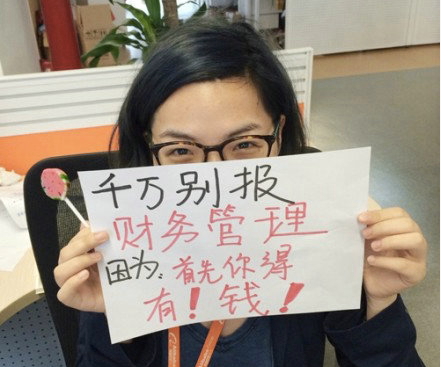 千万别报
财务管理
因为,首先你得
有!钱!